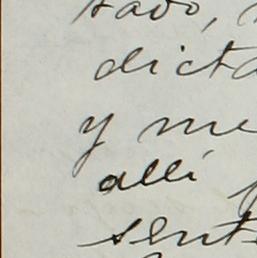 sado,
dicta
y me
allí
sent